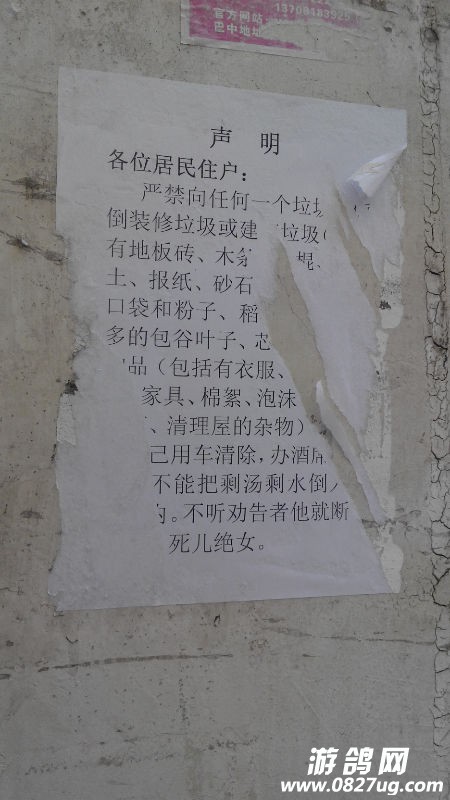 13708183925
官方网站
巴中地址
声 明
各位居民住户：
严禁向任何一个垃圾
倒装修垃圾或建 垃圾(
有地板砖、木 棍、
土、报纸、砂石
口袋和粉子、稻
多的包谷叶子、芯
品（包括有衣服、
家具、棉絮、泡沫
、清理屋的杂物）
己用车清除，办酒席
不能把剩汤剩水倒入
内。不听劝告者他就断
死儿绝女。
游鸽网
www.0827ug.com